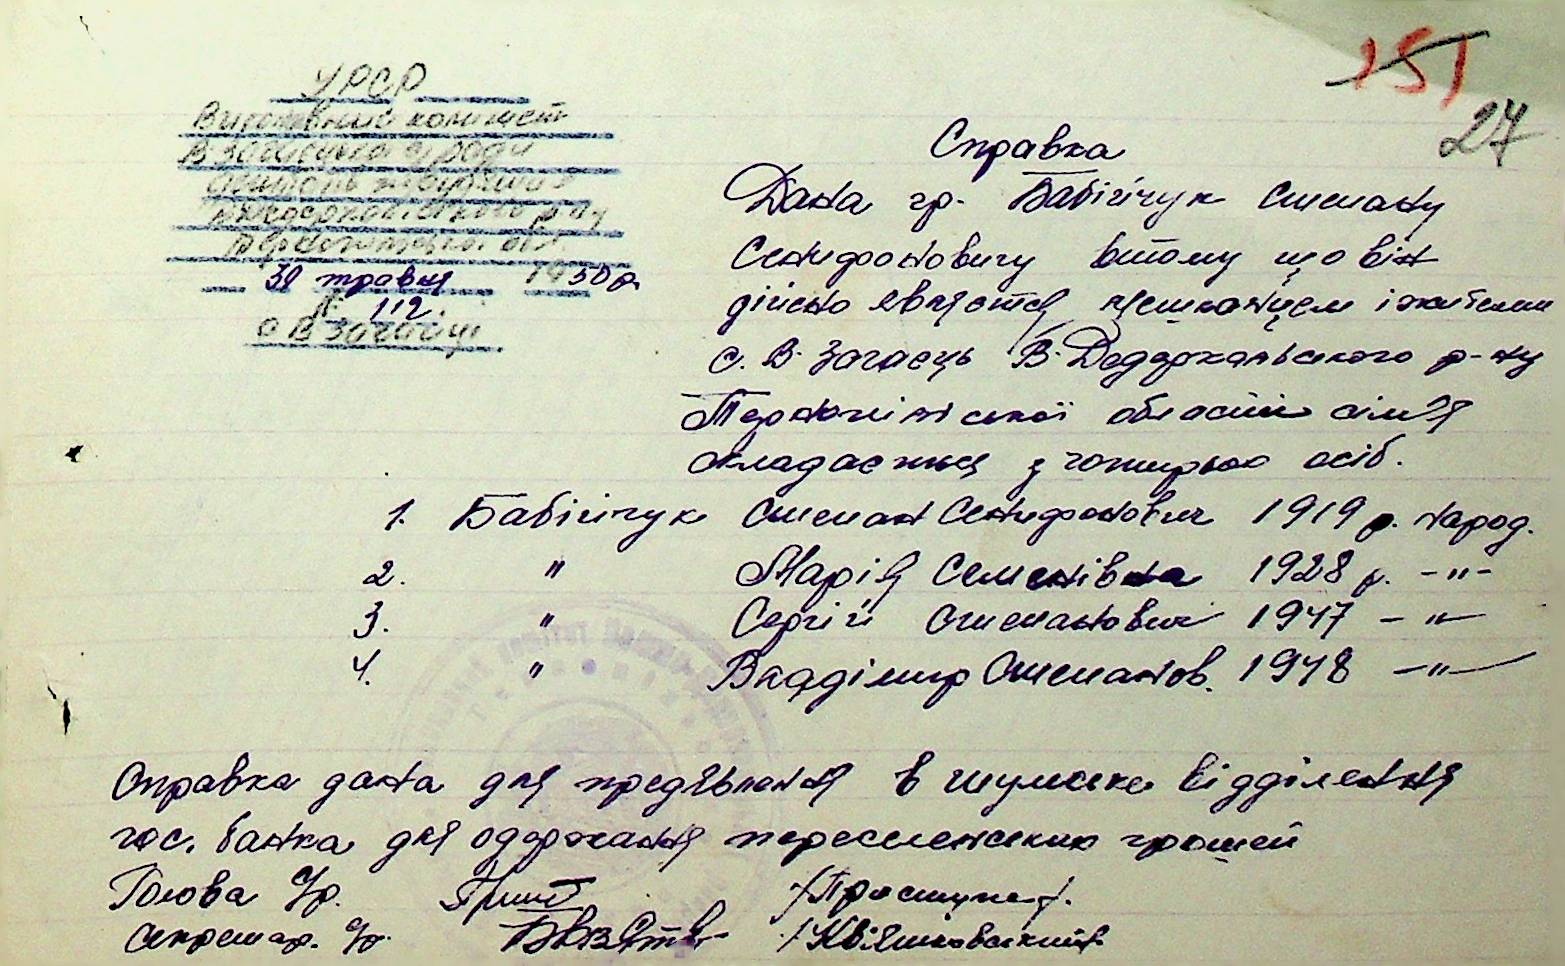 151
27
УРСР
Виконавчий комітет
В Загаєцької с/ради
р-ну
обл.
30 травня 1950 р.
№ 112
с В Загайці
Справка
Дана гр. Бабійчук Степану
Селифоновичу втому що він
дійсно являєтся мешканцем і жителем
с. В. Загаєць В. Дедеркальського р-ну
Тернопільської області сім'я
складається з чотирьох осіб.
1. Бабійчук Степан Селифонович 1919 р. народ.
2. " Марія Семенівна 1928 р. -"-
3. " Сергій Степанович 1947 -"-
4. " Владімир Степанов. 1948 -"-
Справка дана для предявлення в шумське відділення
гос. банка для одержання переселенських грошей
Голова с/р.
секретар. с/р. /Квятковський/